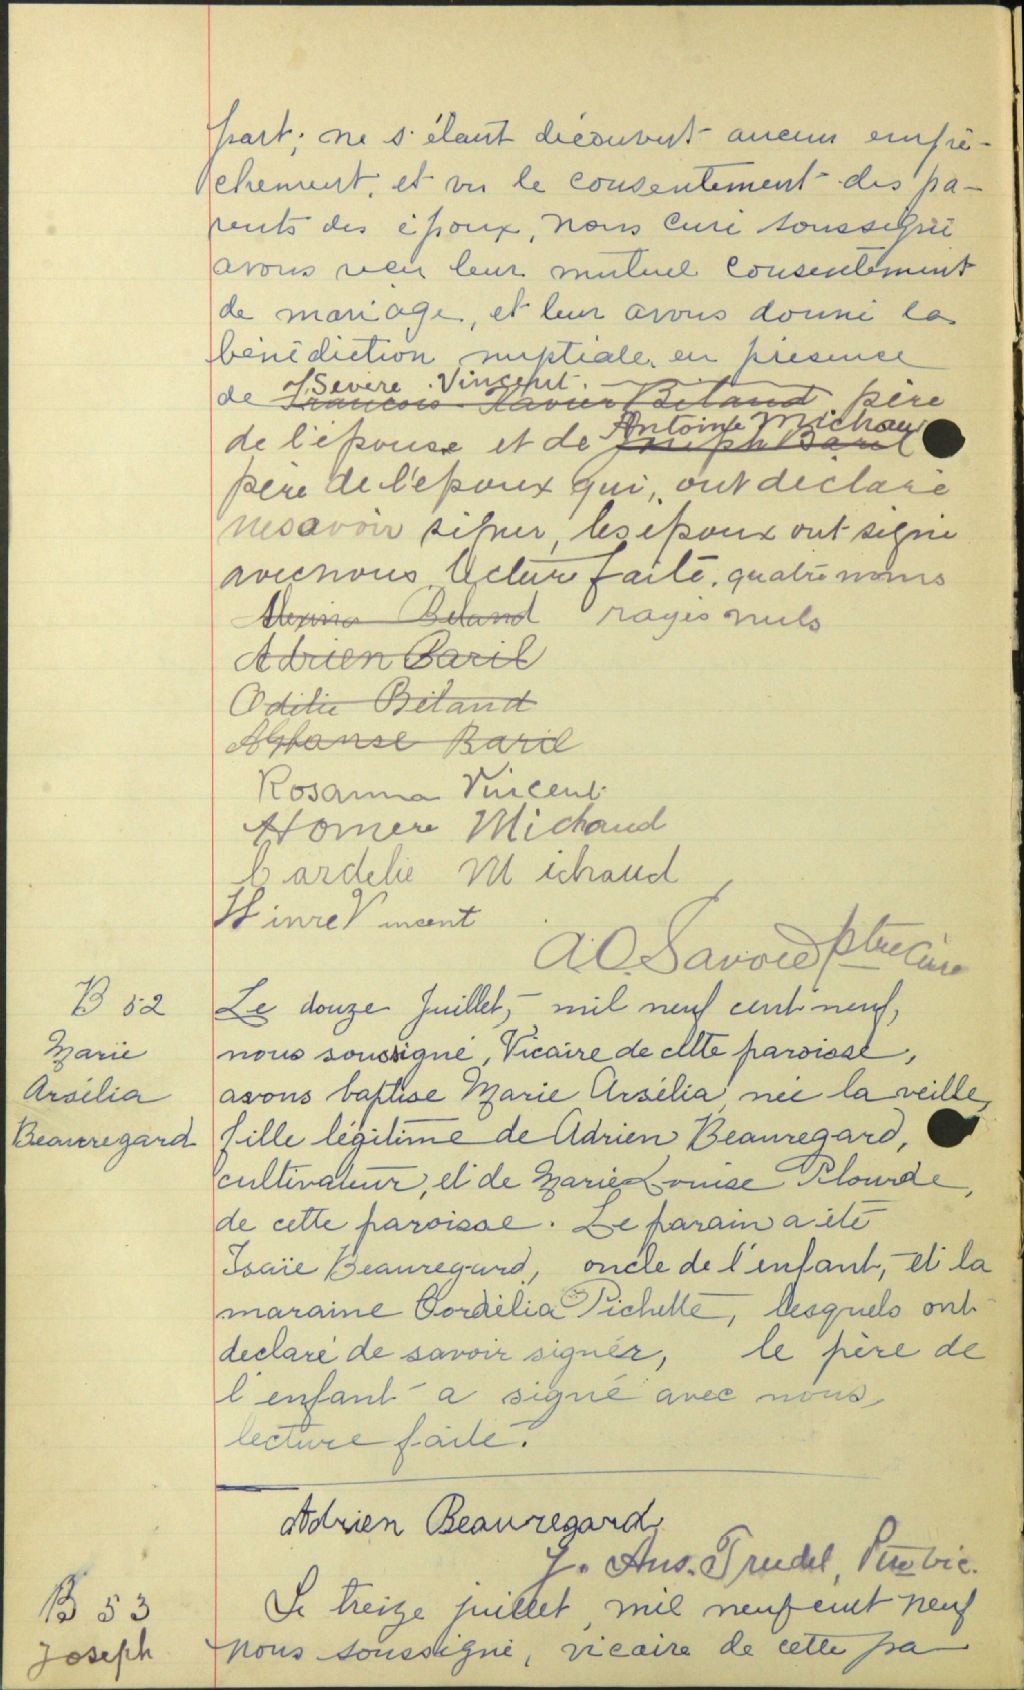 part; ne s'étant découvert aucun empê-
chement, et vu le consentement des pa-
rents des époux, nous curé soussigné
avons reçu leur mutuel consentement
de mariage, et leur avons donné la
bénédiction nuptiale en présence
Sévère Vincent
de François-Xavier Béland père
Antoine Michaud
de l'épouse et de Joseph Baril
père de l'époux qui, ont déclaré
ne savoir signer, les époux ont signé
avec nous, lecture faite. quatre noms
Alexina Beland rayés nuls
Adrien Baril
Odilie Béland
Alphonse Baril
Rosanna Vincent
Homere Michaud
Cardelie Michaud
Vincent
A.O. Savoie ptre Curé
B 52
Marie
Arsélia
Beauregard
Le douze Juillet, mil neuf cent neuf,
nous soussigné, Vicaire de cette paroisse,
avons baptise Marie Arsélia, née la veille,
fille légitime de Adrien Beauregard,
cultivateur, et de Marie Louise Plourde,
de cette paroisse. Le parain a été
Isaïe Beauregard, oncle de l'enfant, et la
maraine Cordélia Pichette, lesquels ont
declaré de savoir signer, le père de
l'enfant a signé avec nous,
lecture faite.
Adrien Beauregard
J. Ans. Trudel, Ptre vic.
B 53
Joseph
Le treize juillet, mil neuf cent neuf
nous soussigné, vicaire de cette pa